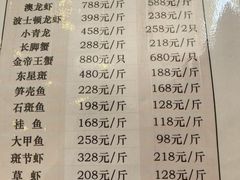 澳龙虾 788元/斤 588元/斤
波士顿龙虾 398元/斤 238元/斤
小青龙 458元/斤 258元/2只
长脚蟹 288元/斤 218元/斤
金帝王蟹 880元/斤 680元/只
东星斑 480元/斤 188元/斤
笋壳鱼 228元/斤 168元/斤
石斑鱼 198元/斤 128元/斤
桂鱼 168元/斤 118元/斤
大甲鱼 258元/斤 98元/斤
斑节虾 328元/斤 218元/斤
草虾 208元/斤 128元/斤